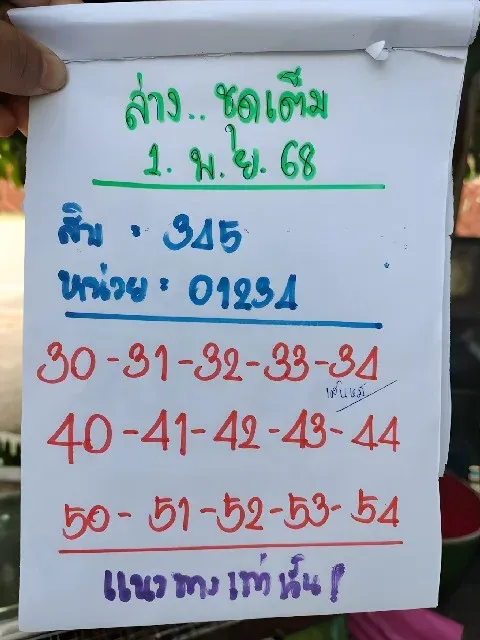 ล่าง.. ชุดเต็ม
1. พ.ย. 68
สิบ : 345
หน่วย : 01234
30-31-32-33-34
40-41-42-43-44
50-51-52-53-54
แนวทางเท่านั้น!